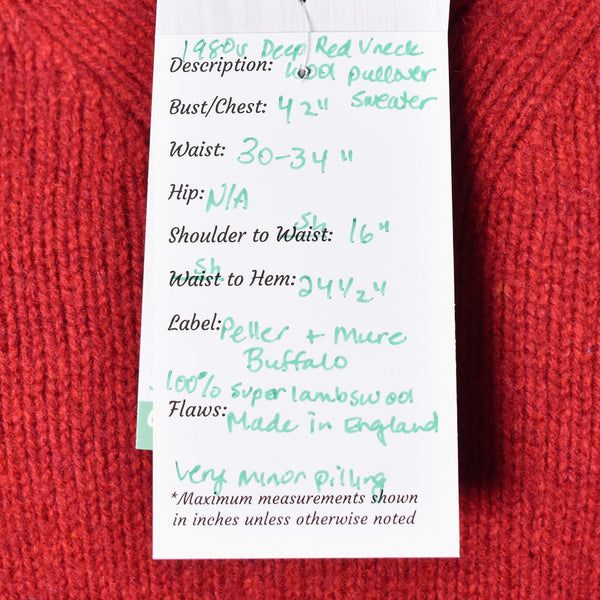 1980s Deep Red Vneck
Description: wool pullover
Bust/Chest: 42" sweater
Waist: 30-34"
Hip: N/A
Sh
Shoulder to Waist: 16"
Sh
Waist to Hem: 24 1/2"
Label: Peller + Mure
Buffalo
100% super lambswool
Flaws: Made in England
Very minor pilling
*Maximum measurements shown
in inches unless otherwise noted